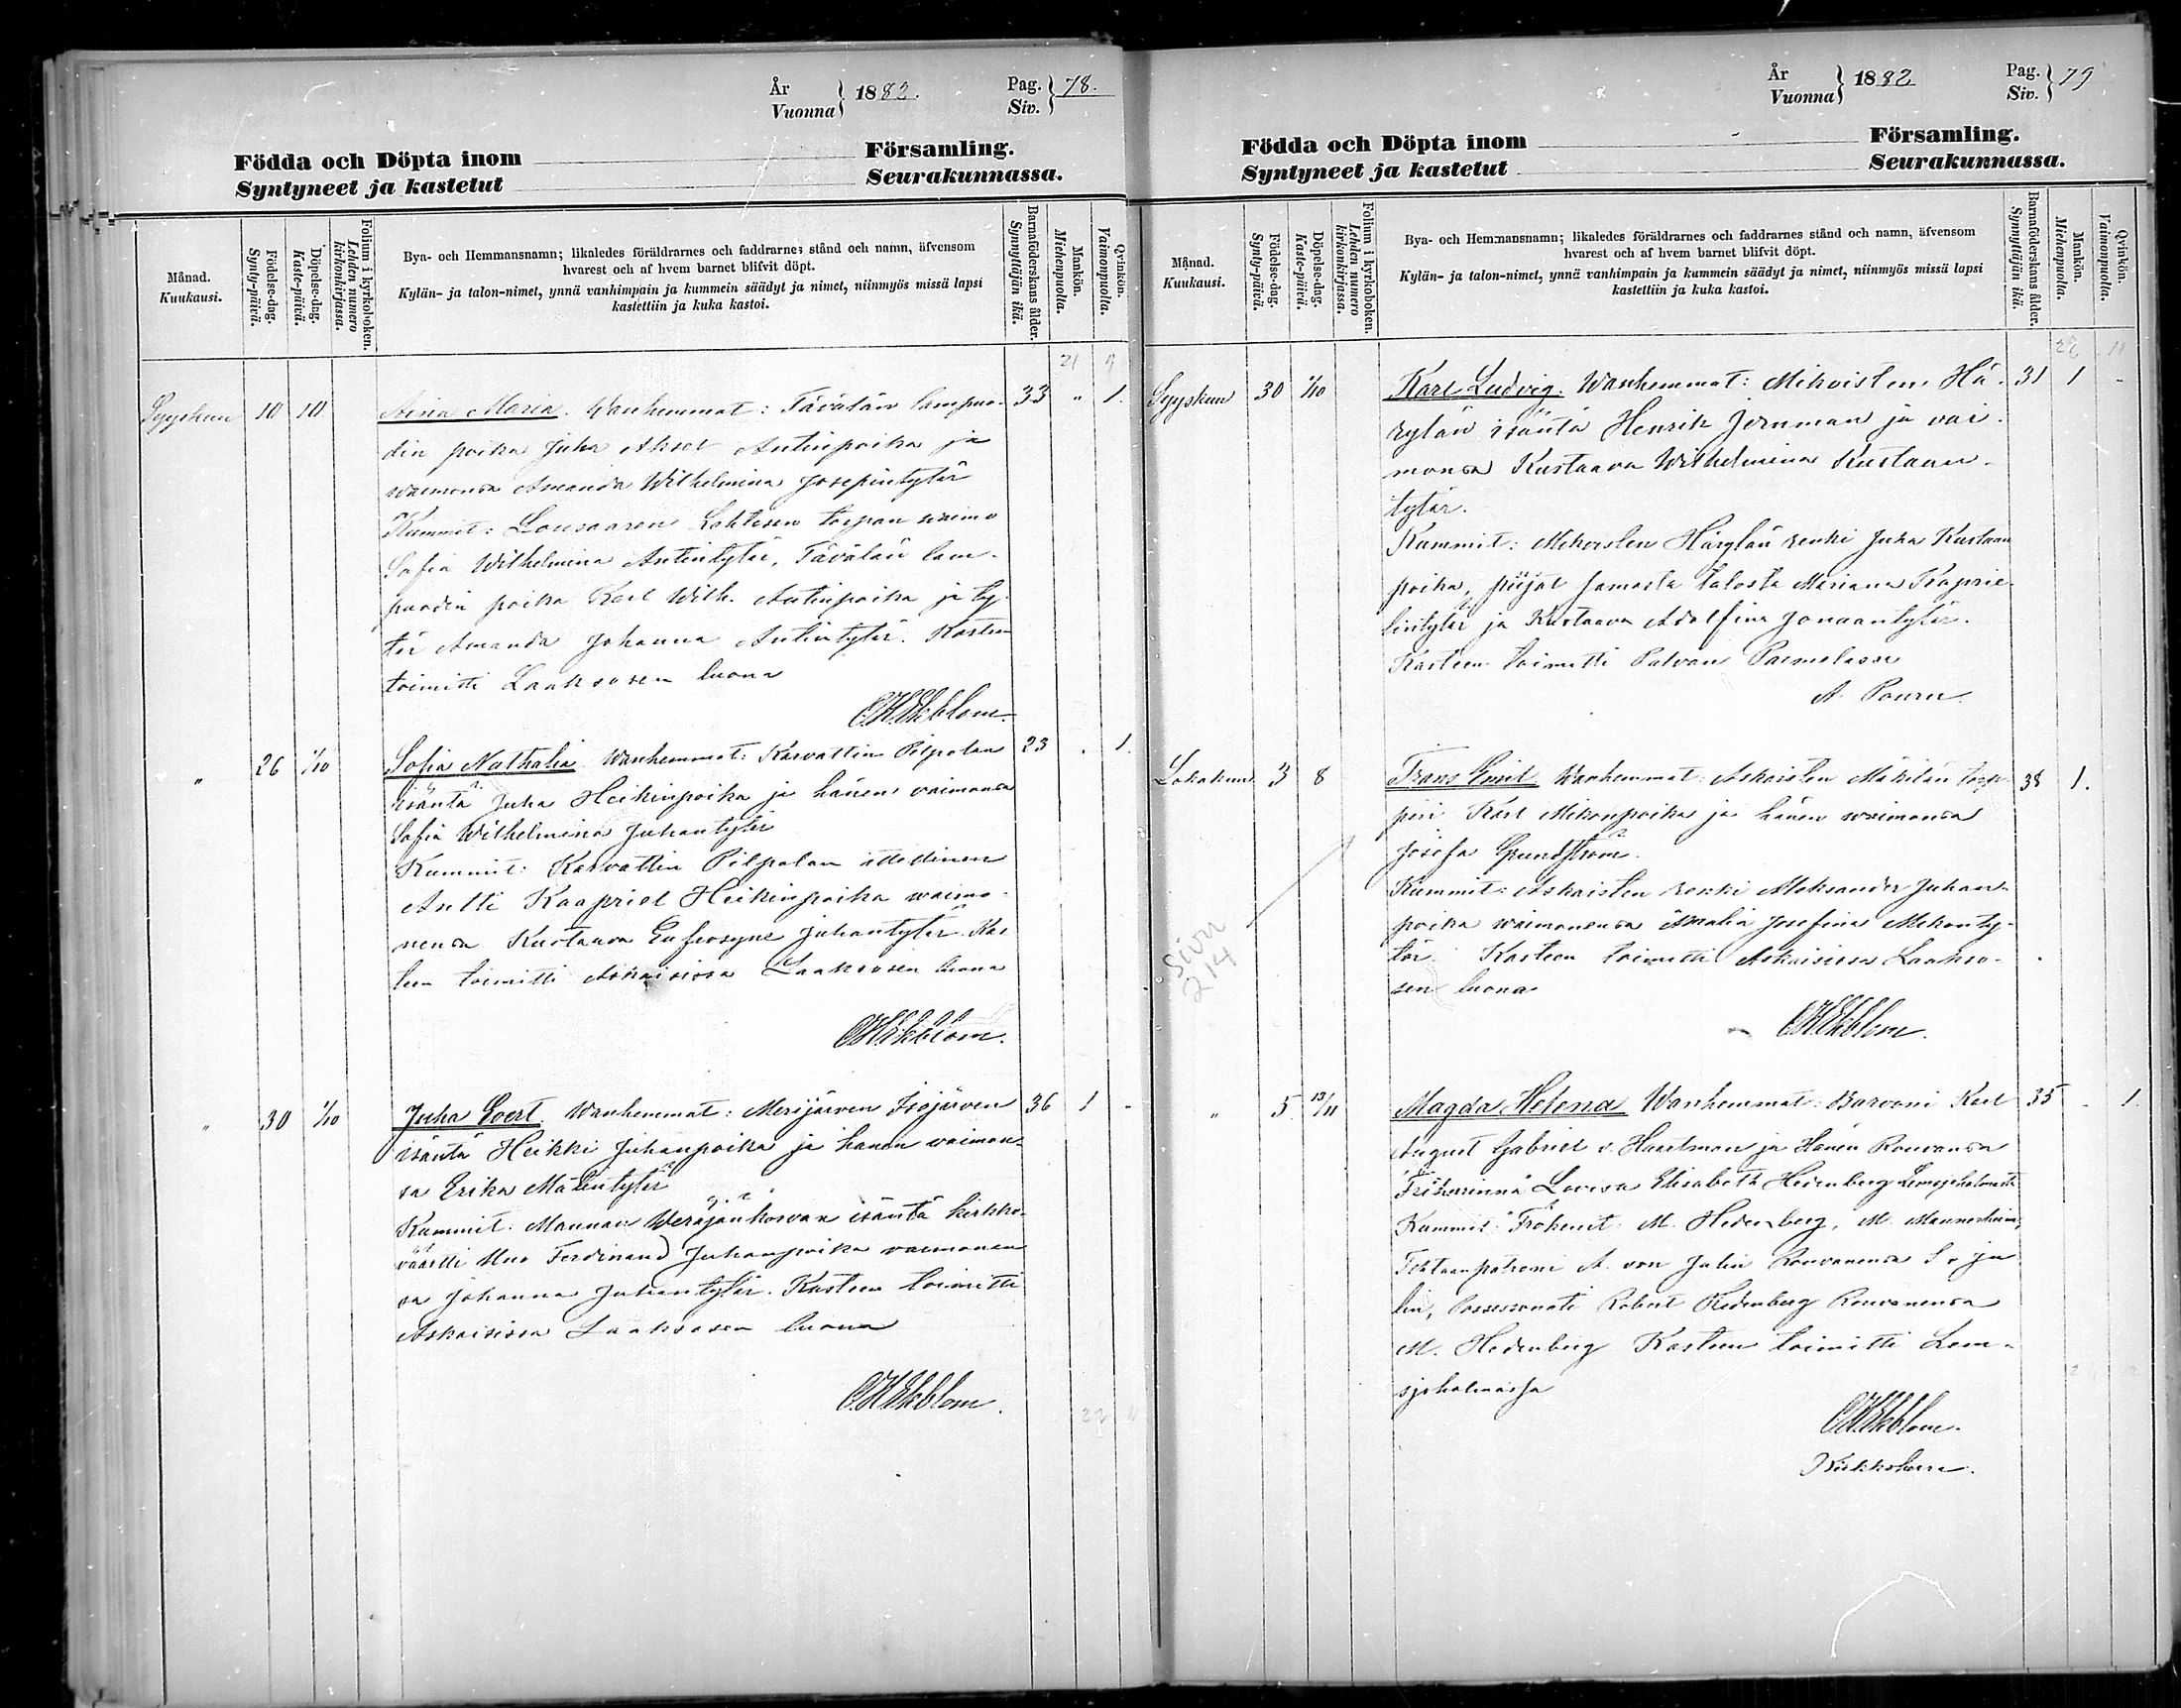 År Vuonna } 1882. Pag. Siv. } 78.
Födda och Döpta inom Församling.
Syntyneet ja kastetut Seurakunnassa.
Månad. Kuukausi.
Födelse-dag. Synty-päivä.
Döpelse-dag. Kaste-päivä.
Folium i kyrkoboken. Lehden numero kirkonkirjassa.
Bya- och Hemmansnamn; likaledes föräldrarnes och faddrarnes stånd och namn, äfvensom
hvarest och af hvem barnet blifvit döpt.
Kylän- ja talon-nimet, ynnä vanhimpain ja kummein säädyt ja nimet, niinmyös missä lapsi
kastettiin ja kuka kastoi.
Barnaföderskans ålder. Synnyttäjän ikä.
Mankön. Miehenpuolia.
Qvinkön. Vaimonpuolia.
21 9
Syyskuu 10 10 Aina Maria. Wanhemmat: Tävälän lampuo- 33 " 1.
din poika Juha Aksel Antinpoika ja
waimonsa Amanda Wilhelmina Josepintytär
Kummit: Lousaaren Lahtisen torpan waimo
Sofia Wilhelmina Antintytär, Tävälän lam-
puodin poika Karl Wilh. Antinpoika ja ty-
tär Amanda Johanna Antintytär. Kasteen
toimitti Laaksosen luona
C.H.Ekblom.
" 26 1/10 Sofia Nathalia Wanhemmat: Karvattin Pilpolan 23 . 1.
isäntä Juha Heikinpoika ja hänen vaimonsa
Sofia Wilhelmina Juhantytär
Kummit: Karvattin Pilpolan
Antti Kaapriel Heikinpoika waimo-
nensa Kustaava Eufrosyne Juhantytär. Kas
teen toimitti Askaisissa Laaksosen luona
C.H.Ekblom.
" 30 1/10 Juha Evert Wanhemmat: Merijärven Isojärven 36 1 -
isäntä Heikki Juhanpoika ja hänen vaimon-
sa Erika Matintytär
Kummit: Mannan Weräjänkorvan isäntä kirkko-
väärtti Ferdinand Juhanpoika vaimonen
sa Johanna Juhantytär. Kasteen toimitti
Askaisissa Laaksosen luona
C.H.Ekblom.
År Vuonna } 1882 Pag. Siv. } 79
Födda och Döpta inom Församling.
Syntyneet ja kastetut Seurakunnassa.
Månad. Kuukausi.
Födelse-dag. Synty-päivä.
Döpelse-dag. Kaste-päivä.
Folium i kyrkoboken. Lehden numero kirkonkirjassa.
Bya- och Hemmansnamn; likaledes föräldrarnes och faddrarnes stånd och namn, äfvensom
hvarest och af hvem barnet blifvit döpt.
Kylän- ja talon-nimet, ynnä vanhimpain ja kummein säädyt ja nimet, niinmyös missä lapsi
kastettiin ja kuka kastoi.
Barnaföderskans ålder. Synnyttäjän ikä.
Mankön. Miehenpuolia.
Qvinkön. Vaimonpuolia.
22 11
Syyskuu 30 1/10 Karl Ludvig. Wanhemmat: Mikoisten Hä- 31 1 -
rylän isäntä Henrik Jernman ja vai-
monsa Kustaava Wilhelmina Kustaan-
tytär.
Kummit: Mikoisten Härylän renki Juha Kustaan
poika, piijat samasta talosta Mariana Kaprie-
lintytär ja Kustaava Adolfina Jonaantytär.
Kasteen toimitti Palvan
A.
Lokakuu 3 8 Frans Emil Wanhemmat: Askaisten Mäkilän torp- 38 1.
pari Karl Mikonpoika ja hänen waimonsa
Josefa Grundström.
Kummit: Askaisten renki Aleksander Juhan-
poika waimonensa Amalia Josefina Mikonty-
tär. Kasteen toimitti Askaisissa Laakso-
sen luona
C.H.Ekblom.
Sivu
214
" 5 13/11 Magda Helena Wanhemmat: Barooni Karl 35 - 1
August Gabriel v. Haartman ja Hänen Rouvansa
Friherrinna Lovisa Elisabeth Hedenberg Lemsjoholmasta
Kummit: Frökenit M. Hedenberg, M. Mannerheim,
Tehtaanpatroni A. von Julin Rouvanensa S. v. Ju
lin, Possessonati Robert Hedenberg Rouvanensa
M. Hedenberg Kasteen toimitti Lem-
sjoholmassa
C.H.Ekblom.
Kirkkoherra.